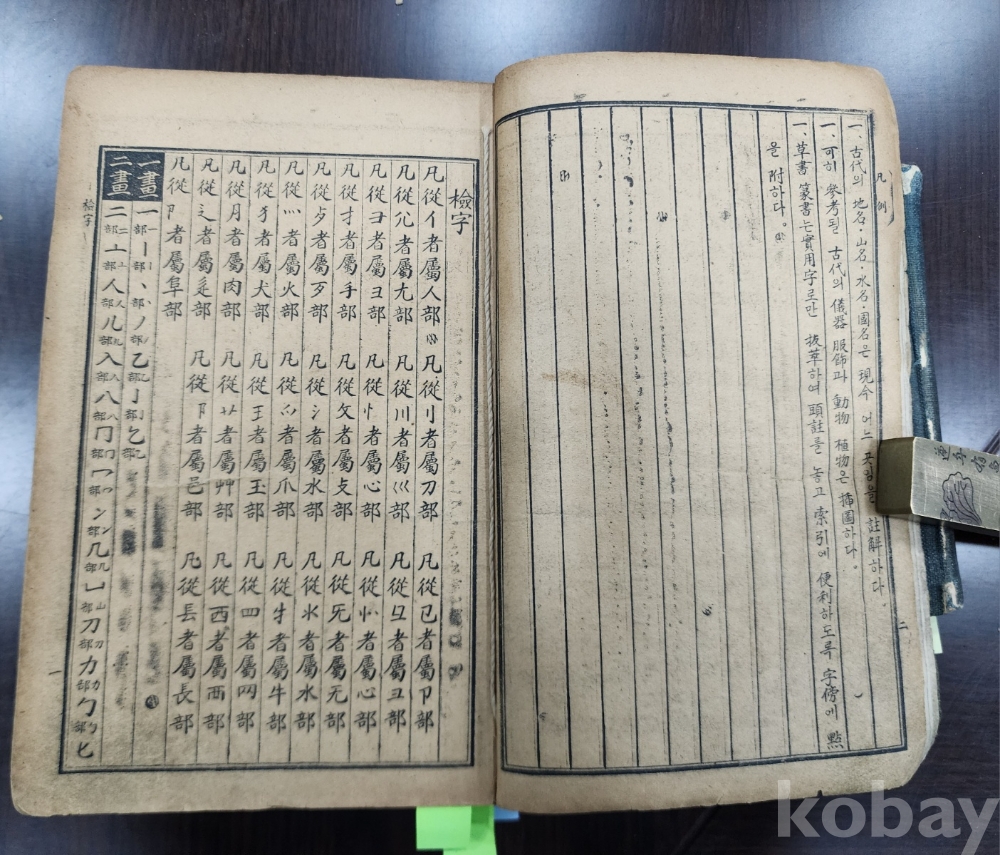 凡例
一、古代의 地名·山名·水名·國名은 現今 어느 곳임을 註解하다
一、可히 參考될 古代의 儀器 服飾과 動物 植物은 揷圖하다。
一、草書 篆書는 實用字로만 拔草하여 頭註를 놓고 索引에 便利하도록 字傍에 點
을 附하다。
二
檢字
凡從亻者屬人部 凡從刂者屬刀部 凡從㔾者屬卩部
凡從尣者屬尢部 凡從川者屬巛部 凡從彑者屬彐部
凡從彐者屬彐部 凡從忄者屬心部 凡從㣺者屬心部
凡從扌者屬手部 凡從攵者屬攴部 凡從旡者屬无部
凡從歺者屬歹部 凡從氵者屬水部 凡從氺者屬水部
凡從灬者屬火部 凡從爫者屬爪部 凡從牜者屬牛部
凡從犭者屬犬部 凡從王者屬玉部 凡從罒者屬网部
凡從月者屬肉部 凡從艹者屬艸部 凡從西者屬襾部
凡從辶者屬辵部 凡從阝者屬邑部 凡從镸者屬長部
凡從阝者屬阜部
一畫 一部 丨部 丶部 丿部 乙部 亅部
二畫 二部 亠部 人部 儿部 入部 八部 冂部 冖部 冫部 几部 凵部 刀部 力部 勹部 匕
檢字
一
kobay